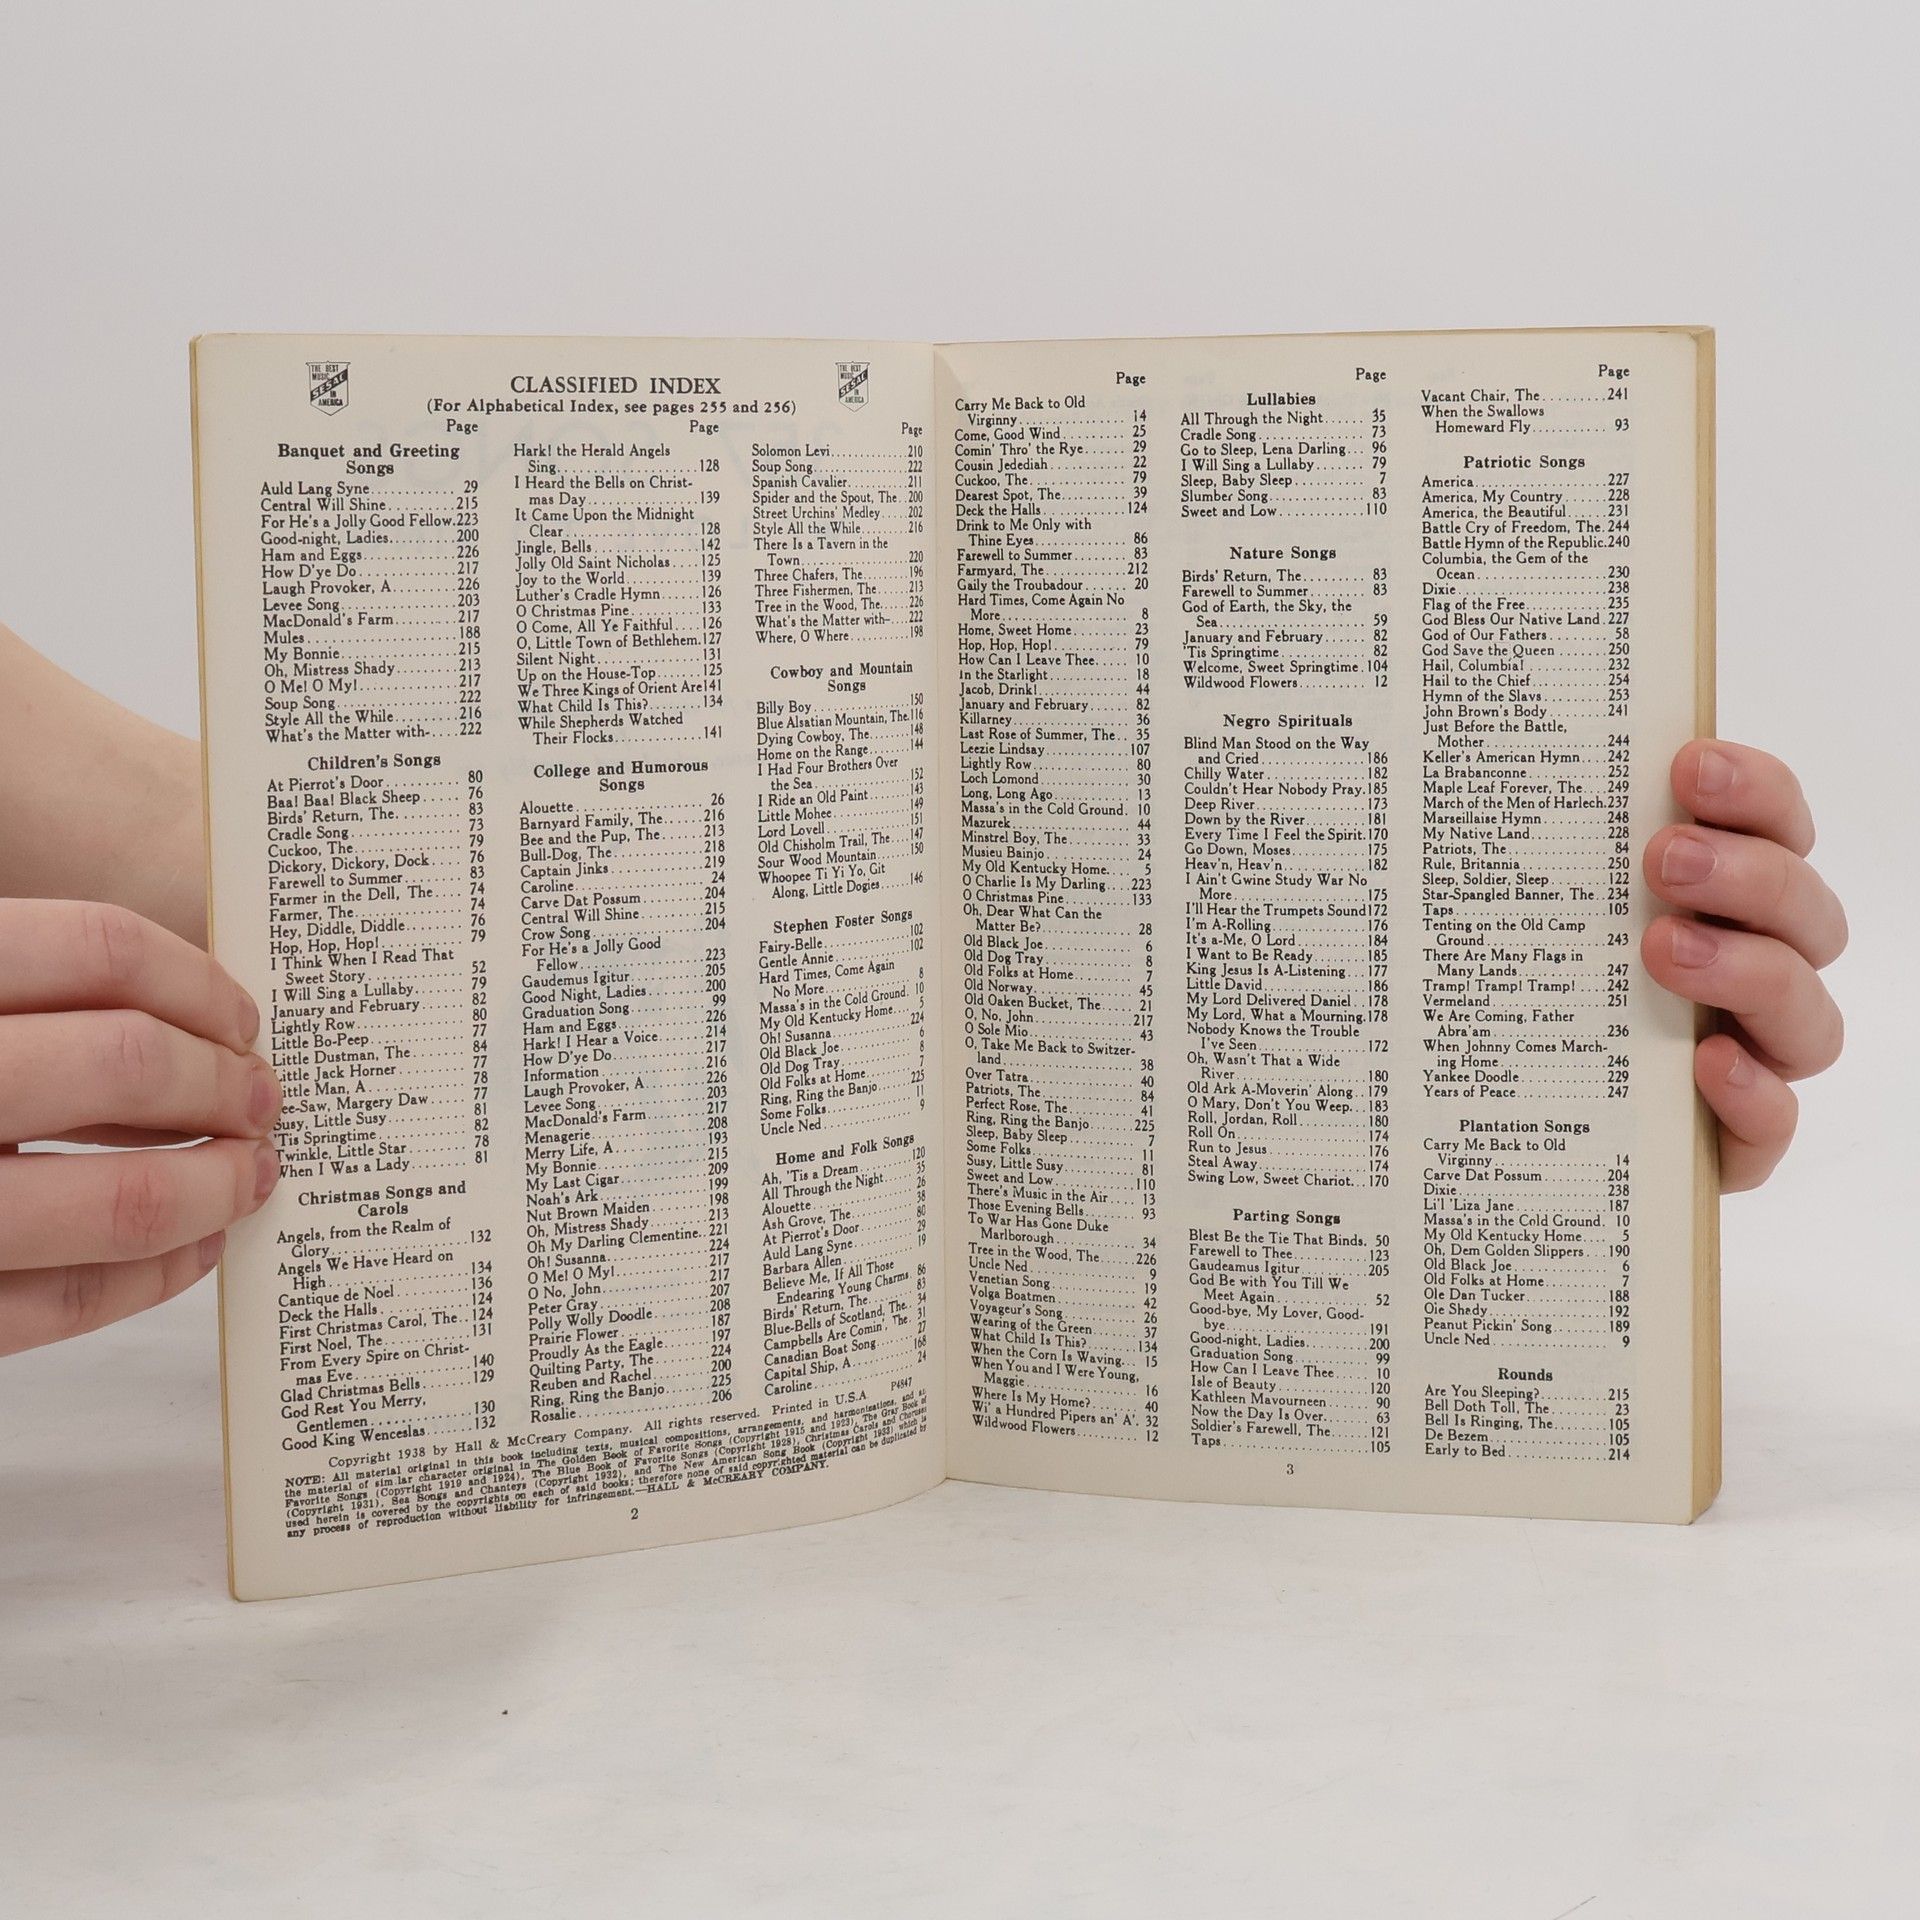 THE BEST
MUSIC
SESAC
IN
AMERICA
CLASSIFIED INDEX
(For Alphabetical Index, see pages 255 and 256)
THE BEST
MUSIC
SESAC
IN
AMERICA
Page
Banquet and Greeting
Songs
Auld Lang Syne............ 29
Central Will Shine..........215
For He's a Jolly Good Fellow.223
Good-night, Ladies..........200
Ham and Eggs..............226
How D'ye Do...............217
Laugh Provoker, A..........226
Levee Song.................203
MacDonald's Farm..........217
Mules......................188
My Bonnie.................215
Oh, Mistress Shady..........213
O Me! O My!...............217
Soup Song..................222
Style All the While..........216
What's the Matter with-....222
Children's Songs
At Pierrot's Door........... 80
Baa! Baa! Black Sheep...... 76
Birds' Return, The.......... 83
Cradle Song................ 73
Cuckoo, The................ 79
Dickory, Dickory, Dock..... 76
Farewell to Summer......... 83
Farmer in the Dell, The..... 74
Farmer, The................ 74
Hey, Diddle, Diddle......... 76
Hop, Hop, Hop!............ 79
I Think When I Read That
Sweet Story............... 52
I Will Sing a Lullaby........ 79
January and February....... 82
Lightly Row................ 80
Little Bo-Peep.............. 77
Little Dustman, The........ 84
Little Jack Horner.......... 77
Little Man, A.............. 78
ee-Saw, Margery Daw....... 77
Susy, Little Susy............ 81
'Tis Springtime............. 82
Twinkle, Little Star......... 78
When I Was a Lady......... 81
Christmas Songs and
Carols
Angels, from the Realm of
Glory.....................132
Angels We Have Heard on
High.....................134
Cantique de Noel...........136
Deck the Halls..............124
First Christmas Carol, The..124
First Noel, The.............131
From Every Spire on Christ-
mas Eve..................140
Glad Christmas Bells........129
God Rest You Merry,
Gentlemen................130
Good King Wenceslas.......132
Page
Hark! the Herald Angels
Sing......................128
I Heard the Bells on Christ-
mas Day..................139
It Came Upon the Midnight
Clear.....................128
Jingle, Bells................142
Jolly Old Saint Nicholas....125
Joy to the World............139
Luther's Cradle Hymn......126
O Christmas Pine...........133
O Come, All Ye Faithful....126
O, Little Town of Bethlehem.127
Silent Night................131
Up on the House-Top.......125
We Three Kings of Orient Are141
What Child Is This?........134
While Shepherds Watched
Their Flocks..............141
College and Humorous
Songs
Alouette................... 26
Barnyard Family, The......216
Bee and the Pup, The.......213
Bull-Dog, The..............218
Captain Jinks..............219
Caroline................... 24
Carve Dat Possum..........204
Central Will Shine..........215
Crow Song.................204
For He's a Jolly Good
Fellow....................223
Gaudemus Igitur...........205
Good Night, Ladies.........200
Graduation Song............ 99
Ham and Eggs.............226
Hark! I Hear a Voice.......214
How D'ye Do..............217
Information................216
Laugh Provoker, A.........226
Levee Song.................203
MacDonald's Farm.........217
Menagerie..................208
Merry Life, A..............193
My Bonnie.................215
My Last Cigar..............209
Noah's Ark.................199
Nut Brown Maiden.........198
Oh, Mistress Shady.........213
Oh My Darling Clementine..221
Oh! Susanna................224
O Me! O My!...............217
O No, John.................217
Peter Gray..................207
Polly Wolly Doodle.........208
Prairie Flower..............187
Proudly As the Eagle.......197
Quilting Party, The.........224
Reuben and Rachel.........200
Ring, Ring the Banjo.......225
Rosalie.....................206
Page
Solomon Levi..............210
Soup Song.................222
Spanish Cavalier...........211
Spider and the Spout, The..200
Street Urchins' Medley.....202
Style All the While.........216
There Is a Tavern in the
Town....................220
Three Chafers, The.........196
Three Fishermen, The......213
Tree in the Wood, The.....226
What's the Matter with-...222
Where, O Where...........198
Cowboy and Mountain
Songs
Billy Boy..................150
Blue Alsatian Mountain, The.116
Dying Cowboy, The........148
Home on the Range........144
I Had Four Brothers Over
the Sea..................152
I Ride an Old Paint........143
Little Mohee...............149
Lord Lovell................151
Old Chisholm Trail, The...147
Sour Wood Mountain......150
Whoopee Ti Yi Yo, Git
Along, Little Dogies.....146
Stephen Foster Songs
Fairy-Belle................102
Gentle Annie..............102
Hard Times, Come Again
No More................ 8
Massa's in the Cold Ground. 10
My Old Kentucky Home.... 5
Oh! Susanna...............224
Old Black Joe.............. 6
Old Dog Tray.............. 8
Old Folks at Home......... 7
Ring, Ring the Banjo.......225
Some Folks................ 11
Uncle Ned................. 9
Home and Folk Songs
Ah, 'Tis a Dream..........120
All Through the Night...... 35
Alouette................... 26
Ash Grove, The............ 38
At Pierrot's Door........... 80
Auld Lang Syne............ 29
Barbara Allen.............. 19
Believe Me, If All Those
Endearing Young Charms. 86
Birds' Return, The.......... 83
Blue-Bells of Scotland, The.. 34
Campbells Are Comin', The. 31
Canadian Boat Song........ 27
Capital Ship, A.............168
Caroline................... 24
Copyright 1938 by Hall & McCreary Company. All rights reserved. Printed in U.S.A P4847
NOTE: All material original in this book including texts, musical compositions, arrangements, and harmonisations, and all
the material of similar character original in The Golden Book of Favorite Songs (Copyright 1915 and 1923), The Gray Book of
Favorite Songs (Copyright 1919 and 1924), The Blue Book of Favorite Songs (Copyright 1928), Christmas Carols and Choruses
(Copyright 1931), Sea Songs and Chanteys (Copyright 1932), and The New American Song Book (Copyright 1933) which is
used herein is covered by the copyrights on each of said books; therefore none of said copyrighted material can be duplicated by
any process of reproduction without liability for infringement.—HALL & McCREARY COMPANY.
2
Page
Carry Me Back to Old
Virginny................. 14
Come, Good Wind.......... 25
Comin' Thro' the Rye....... 29
Cousin Jedediah............ 22
Cuckoo, The............... 79
Dearest Spot, The.......... 39
Deck the Halls.............124
Drink to Me Only with
Thine Eyes.............. 86
Farewell to Summer........ 83
Farmyard, The.............212
Gaily the Troubadour....... 20
Hard Times, Come Again No
More.................... 8
Home, Sweet Home......... 23
Hop, Hop, Hop!............ 79
How Can I Leave Thee..... 10
In the Starlight............. 18
Jacob, Drink!............... 44
January and February....... 82
Killarney................... 36
Last Rose of Summer, The.. 35
Leezie Lindsay.............107
Lightly Row................ 80
Loch Lomond.............. 30
Long, Long Ago............ 13
Massa's in the Cold Ground. 10
Mazurek................... 44
Minstrel Boy, The.......... 33
Musieu Bainjo.............. 24
My Old Kentucky Home.... 5
O Charlie Is My Darling....223
O Christmas Pine...........133
Oh, Dear What Can the
Matter Be?............... 28
Old Black Joe.............. 6
Old Dog Tray.............. 8
Old Folks at Home......... 7
Old Norway................ 45
Old Oaken Bucket, The..... 21
O, No, John................217
O Sole Mio................. 43
O, Take Me Back to Switzer-
land..................... 38
Over Tatra................. 40
Patriots, The............... 84
Perfect Rose, The........... 41
Ring, Ring the Banjo.......225
Sleep, Baby Sleep........... 7
Some Folks................ 11
Susy, Little Susy............ 81
Sweet and Low.............110
There's Music in the Air.... 13
Those Evening Bells........ 93
To War Has Gone Duke
Marlborough............. 34
Tree in the Wood, The.....226
Uncle Ned................. 9
Venetian Song.............. 19
Volga Boatmen............. 42
Voyageur's Song............ 26
Wearing of the Green....... 37
What Child Is This?........134
When the Corn Is Waving... 15
When You and I Were Young,
Maggie.................. 16
Where Is My Home?....... 40
Wi' a Hundred Pipers an' A'. 32
Wildwood Flowers.......... 12
Page
Lullabies
All Through the Night...... 35
Cradle Song................ 73
Go to Sleep, Lena Darling... 96
I Will Sing a Lullaby....... 79
Sleep, Baby Sleep........... 7
Slumber Song............... 83
Sweet and Low.............110
Nature Songs
Birds' Return, The.......... 83
Farewell to Summer........ 83
God of Earth, the Sky, the
Sea...................... 59
January and February...... 82
'Tis Springtime............. 82
Welcome, Sweet Springtime.104
Wildwood Flowers.......... 12
Negro Spirituals
Blind Man Stood on the Way
and Cried................186
Chilly Water...............182
Couldn't Hear Nobody Pray.185
Deep River.................173
Down by the River.........181
Every Time I Feel the Spirit.170
Go Down, Moses...........175
Heav'n, Heav'n.............182
I Ain't Gwine Study War No
More....................175
I'll Hear the Trumpets Sound172
I'm A-Rolling..............176
It's a-Me, O Lord..........184
I Want to Be Ready........185
King Jesus Is A-Listening...177
Little David................186
My Lord Delivered Daniel..178
My Lord, What a Mourning.178
Nobody Knows the Trouble
I've Seen................172
Oh, Wasn't That a Wide
River....................180
Old Ark A-Moverin' Along..179
O Mary, Don't You Weep...183
Roll, Jordan, Roll..........180
Roll On....................174
Run to Jesus...............176
Steal Away.................174
Swing Low, Sweet Chariot...170
Parting Songs
Blest Be the Tie That Binds. 50
Farewell to Thee............123
Gaudeamus Igitur...........205
God Be with You Till We
Meet Again.............. 52
Good-bye, My Lover, Good-
bye......................191
Good-night, Ladies..........200
Graduation Song............ 99
How Can I Leave Thee..... 10
Isle of Beauty..............120
Kathleen Mavourneen....... 90
Now the Day Is Over....... 63
Soldier's Farewell, The......121
Taps.......................105
3
Page
Vacant Chair, The..........241
When the Swallows
Homeward Fly........... 93
Patriotic Songs
America....................227
America, My Country......228
America, the Beautiful......231
Battle Cry of Freedom, The.244
Battle Hymn of the Republic.240
Columbia, the Gem of the
Ocean...................230
Dixie......................238
Flag of the Free............235
God Bless Our Native Land.227
God of Our Fathers......... 58
God Save the Queen........250
Hail, Columbia!............232
Hail to the Chief............254
Hymn of the Slavs..........253
John Brown's Body.........241
Just Before the Battle,
Mother..................244
Keller's American Hymn....242
La Brabanconne............252
Maple Leaf Forever, The...249
March of the Men of Harlech.237
Marseillaise Hymn..........248
My Native Land............228
Patriots, The............... 84
Rule, Britannia.............250
Sleep, Soldier, Sleep........122
Star-Spangled Banner, The..234
Taps.......................105
Tenting on the Old Camp
Ground..................243
There Are Many Flags in
Many Lands.............247
Tramp! Tramp! Tramp! ....242
Vermeland..................251
We Are Coming, Father
Abra'am.................236
When Johnny Comes March-
ing Home................246
Yankee Doodle.............229
Years of Peace..............247
Plantation Songs
Carry Me Back to Old
Virginny................. 14
Carve Dat Possum..........204
Dixie......................238
Li'l 'Liza Jane..............187
Massa's in the Cold Ground. 10
My Old Kentucky Home.... 5
Oh, Dem Golden Slippers...190
Old Black Joe.............. 6
Old Folks at Home......... 7
Ole Dan Tucker............188
Ole Shady..................192
Peanut Pickin' Song........189
Uncle Ned................. 9
Rounds
Are You Sleeping?..........215
Bell Doth Toll, The......... 23
Bell Is Ringing, The........105
De Bezem..................105
Early to Bed...............214